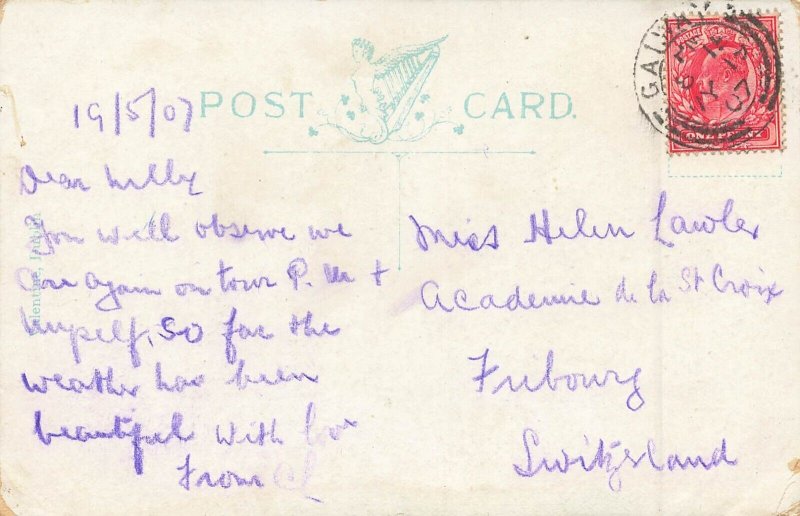 POST CARD.
GALWAY
19/5/07
Dear Milly
You will observe we
are again on tour P. M +
Myself, so far the
weather has been
beautiful with love
From
Miss Helen Lawler
Academie de la St Croix
Fribourg
Switzerland